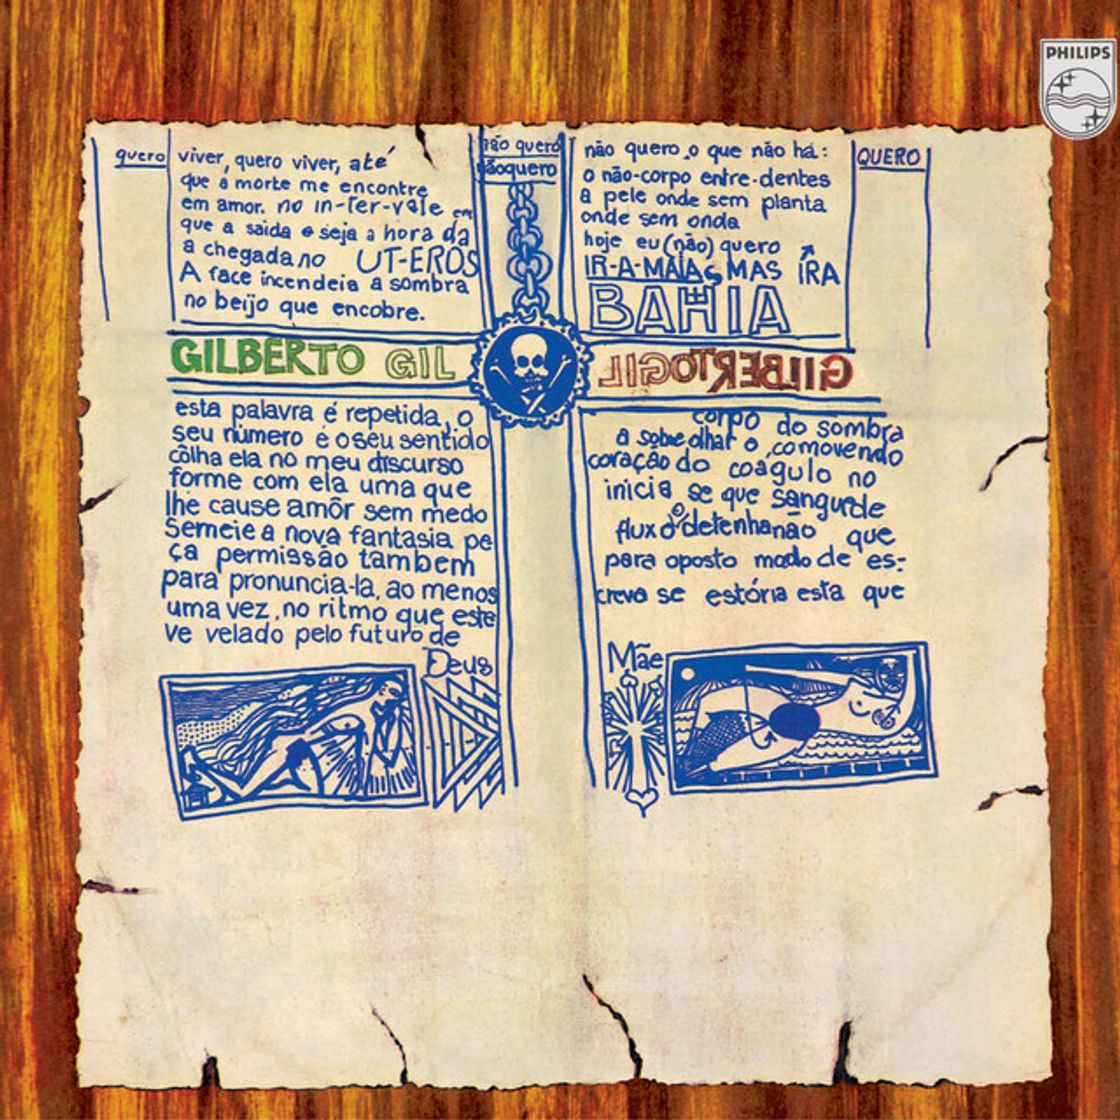 PHILIPS
quero
viver, quero viver, até
que a morte me encontre
em amor. no in-ter-vale em
que a saida e seja a hora da
a chegada no UT-EROS
A face incendeia a sombra
no beijo que encobre.
não quero
nãoquero
não quero o que não há:
o não-corpo entre-dentes
a pele onde sem planta
onde sem onda
hoje eu (não) quero
IR-A-MAIAS MAS IRA
BAHIA
QUERO
GILBERTO GIL
GILBERTO GIL
esta palavra é repetida, o
seu número é o seu sentido
côlha ela no meu discurso
forme com ela uma que
lhe cause amôr sem medo
Semeie a nova fantasia pe
ça permissão tambem
para pronuncia-la, ao menos
uma vez, no ritmo que este
ve velado pelo futuro de
Deus
corpo do sombra
a sobre olhar o comovendo
coração do coagulo no
inicia se que sangue de
fluxo detenha não que
para oposto modo de es-
creva se estória esta que
Mãe